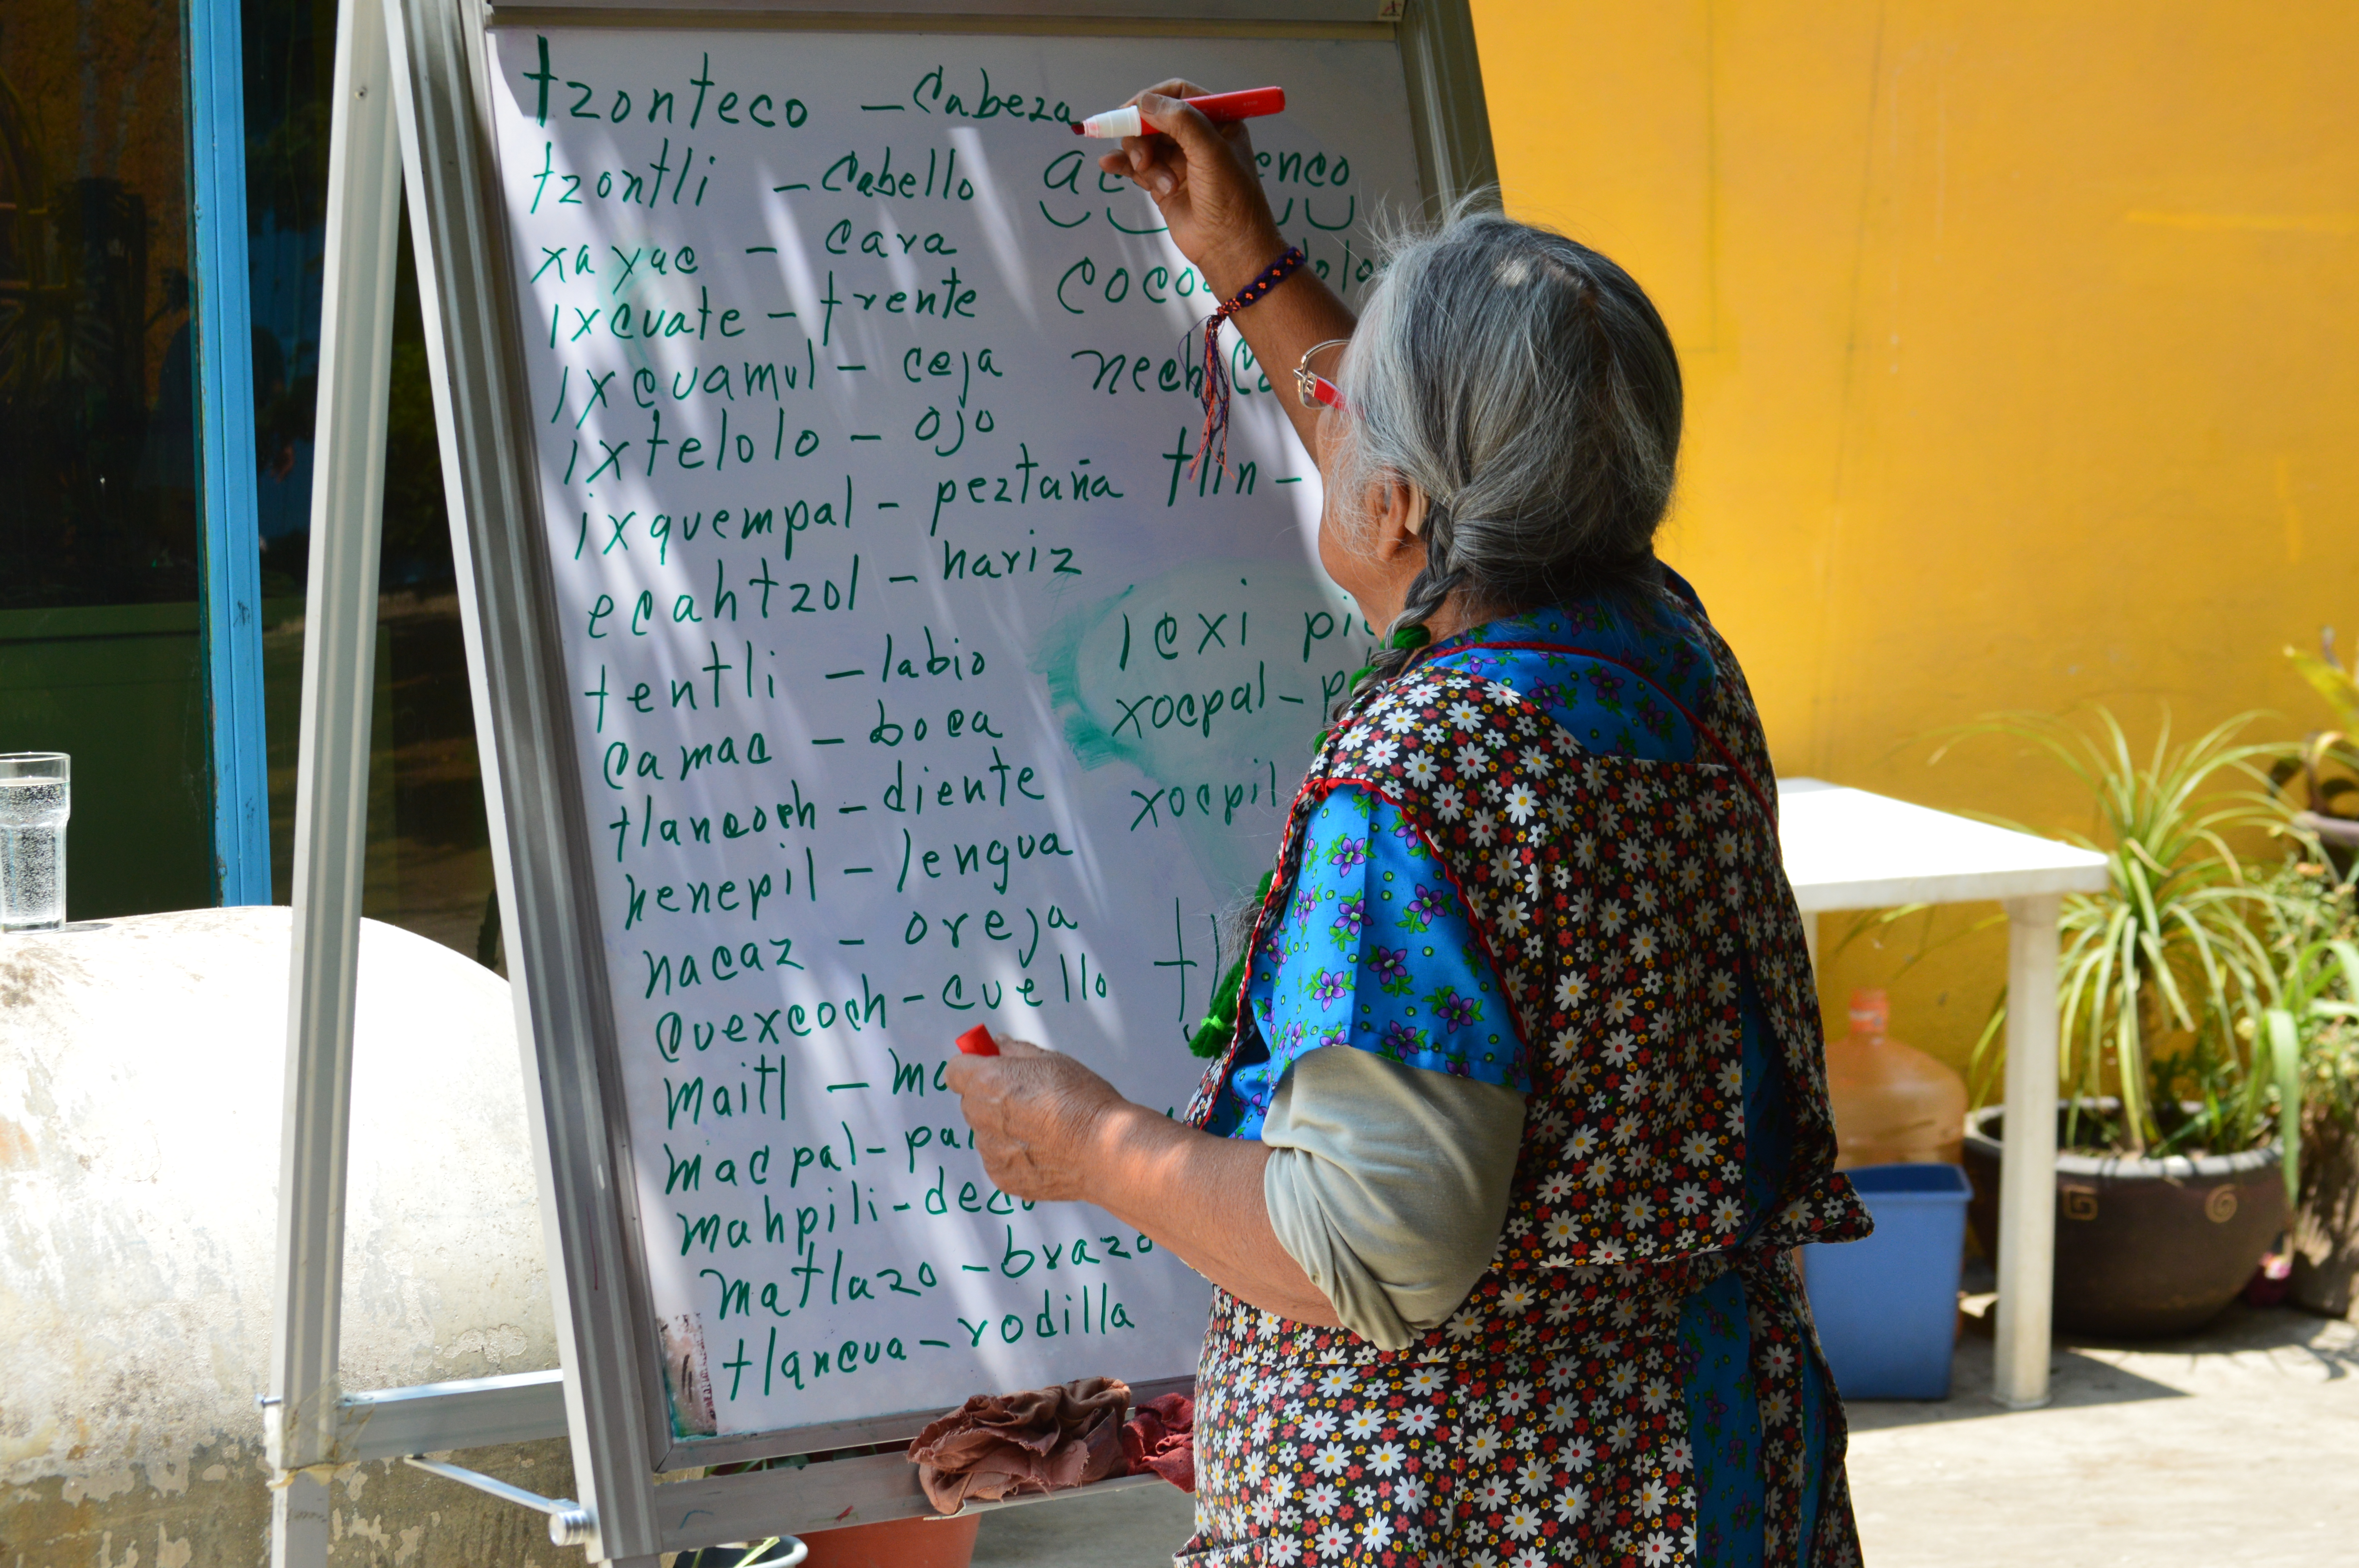 tzonteco – Cabeza
tzontli – Cabello
xayac – cara
ixcuate – frente
ixcuamul – ceja
ixtelolo – ojo
ixquempal – peztaña
ecahtzol – nariz
tentli – labio
camac – boca
tlancoch – diente
nenepil – lengua
nacaz – oreja
quexcoch – cuello
maitl –
macpal –
mahpili –
matlazo – brazo
tlancua – rodilla
nech
tlin –
icxi
xocpal –
xocpil